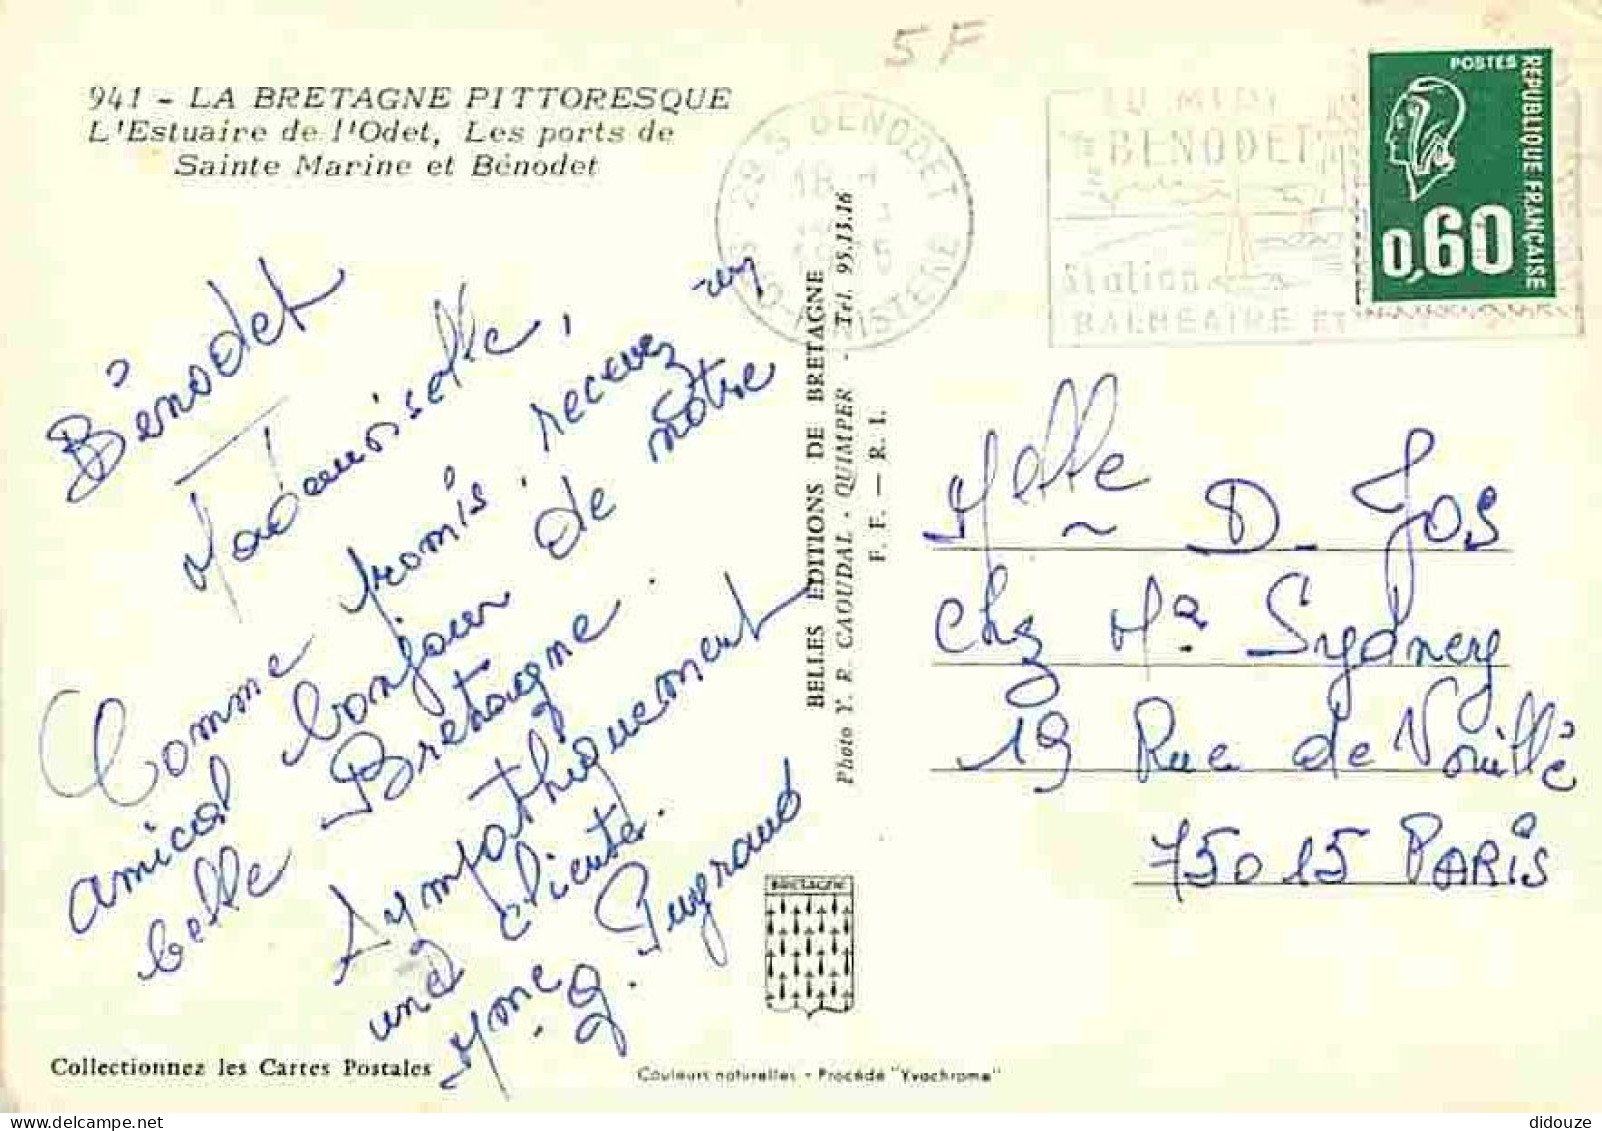 5F
941 - LA BRETAGNE PITTORESQUE
L'Estuaire de l'Odet, Les ports de
Sainte Marine et Bénodet
29 S BENODET
18 H
FINISTERE
BENODET
Station
BALNEAIRE ET
POSTES
REPUBLIQUE FRANÇAISE
0,60
Bénodet
Mademoiselle,
Comme promis, recevez
amical bonjour de notre
belle Bretagne.
Sympathiquement
une cliente.
Mme G. Guyraud
BELLES EDITIONS DE BRETAGNE
Photo Y. R. CAOUDAL - QUIMPER - Tél. 95.13.16
F. F. — R. I.
Melle D. Jos
chz Ma Sydney
19 Rue de Vouillé
75015 PARIS
BRETAGNE
Collectionnez les Cartes Postales
Couleurs naturelles - Procédé "Yvochrome"
didouze